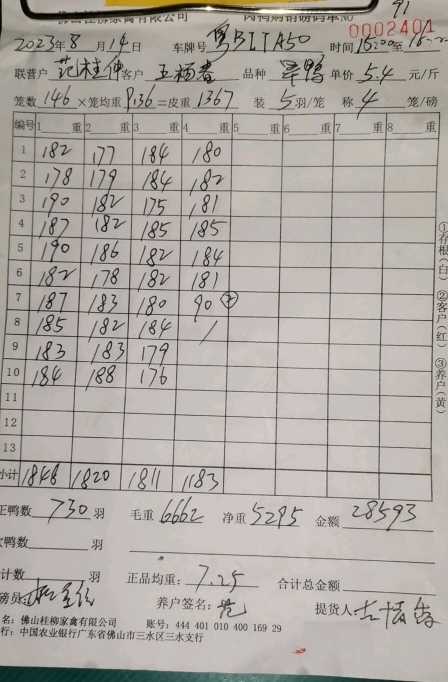 佛山桂柳家禽有限公司
0002401
2023年8月14日 车牌号 粤BITA50 时间 15:00至
联营户 范桂伸 客户 品种 旱鸭 单价 5.4 元/斤
笼数 146 ×笼均重 9.36 =皮重 1367 装 5 羽/笼 称 4 笼/磅
编号 1 重 2 重 3 重 4 重 5 重 6 重 7 重 8 重
1 182 177 184 180
2 178 179 184 182
3 190 182 175 181
4 187 182 185 185
5 190 186 182 184
6 182 178 182 181
7 187 183 180 90 ②
8 185 182 184 /
9 183 183 179
10 184 188 176
11
12
13
小计 1848 1820 1811 1183
正鸭数 730 羽 毛重 6662 净重 5295 金额 28593
鸭数 羽
计数 羽 正品均重: 7.25 合计总金额
磅员 养户签名: 范 提货人
名: 佛山桂柳家禽有限公司 账号: 444 401 010 400 169 29
行: 中国农业银行广东省佛山市三水区三水支行
①存根(白) ②客户(红) ③养户(黄)